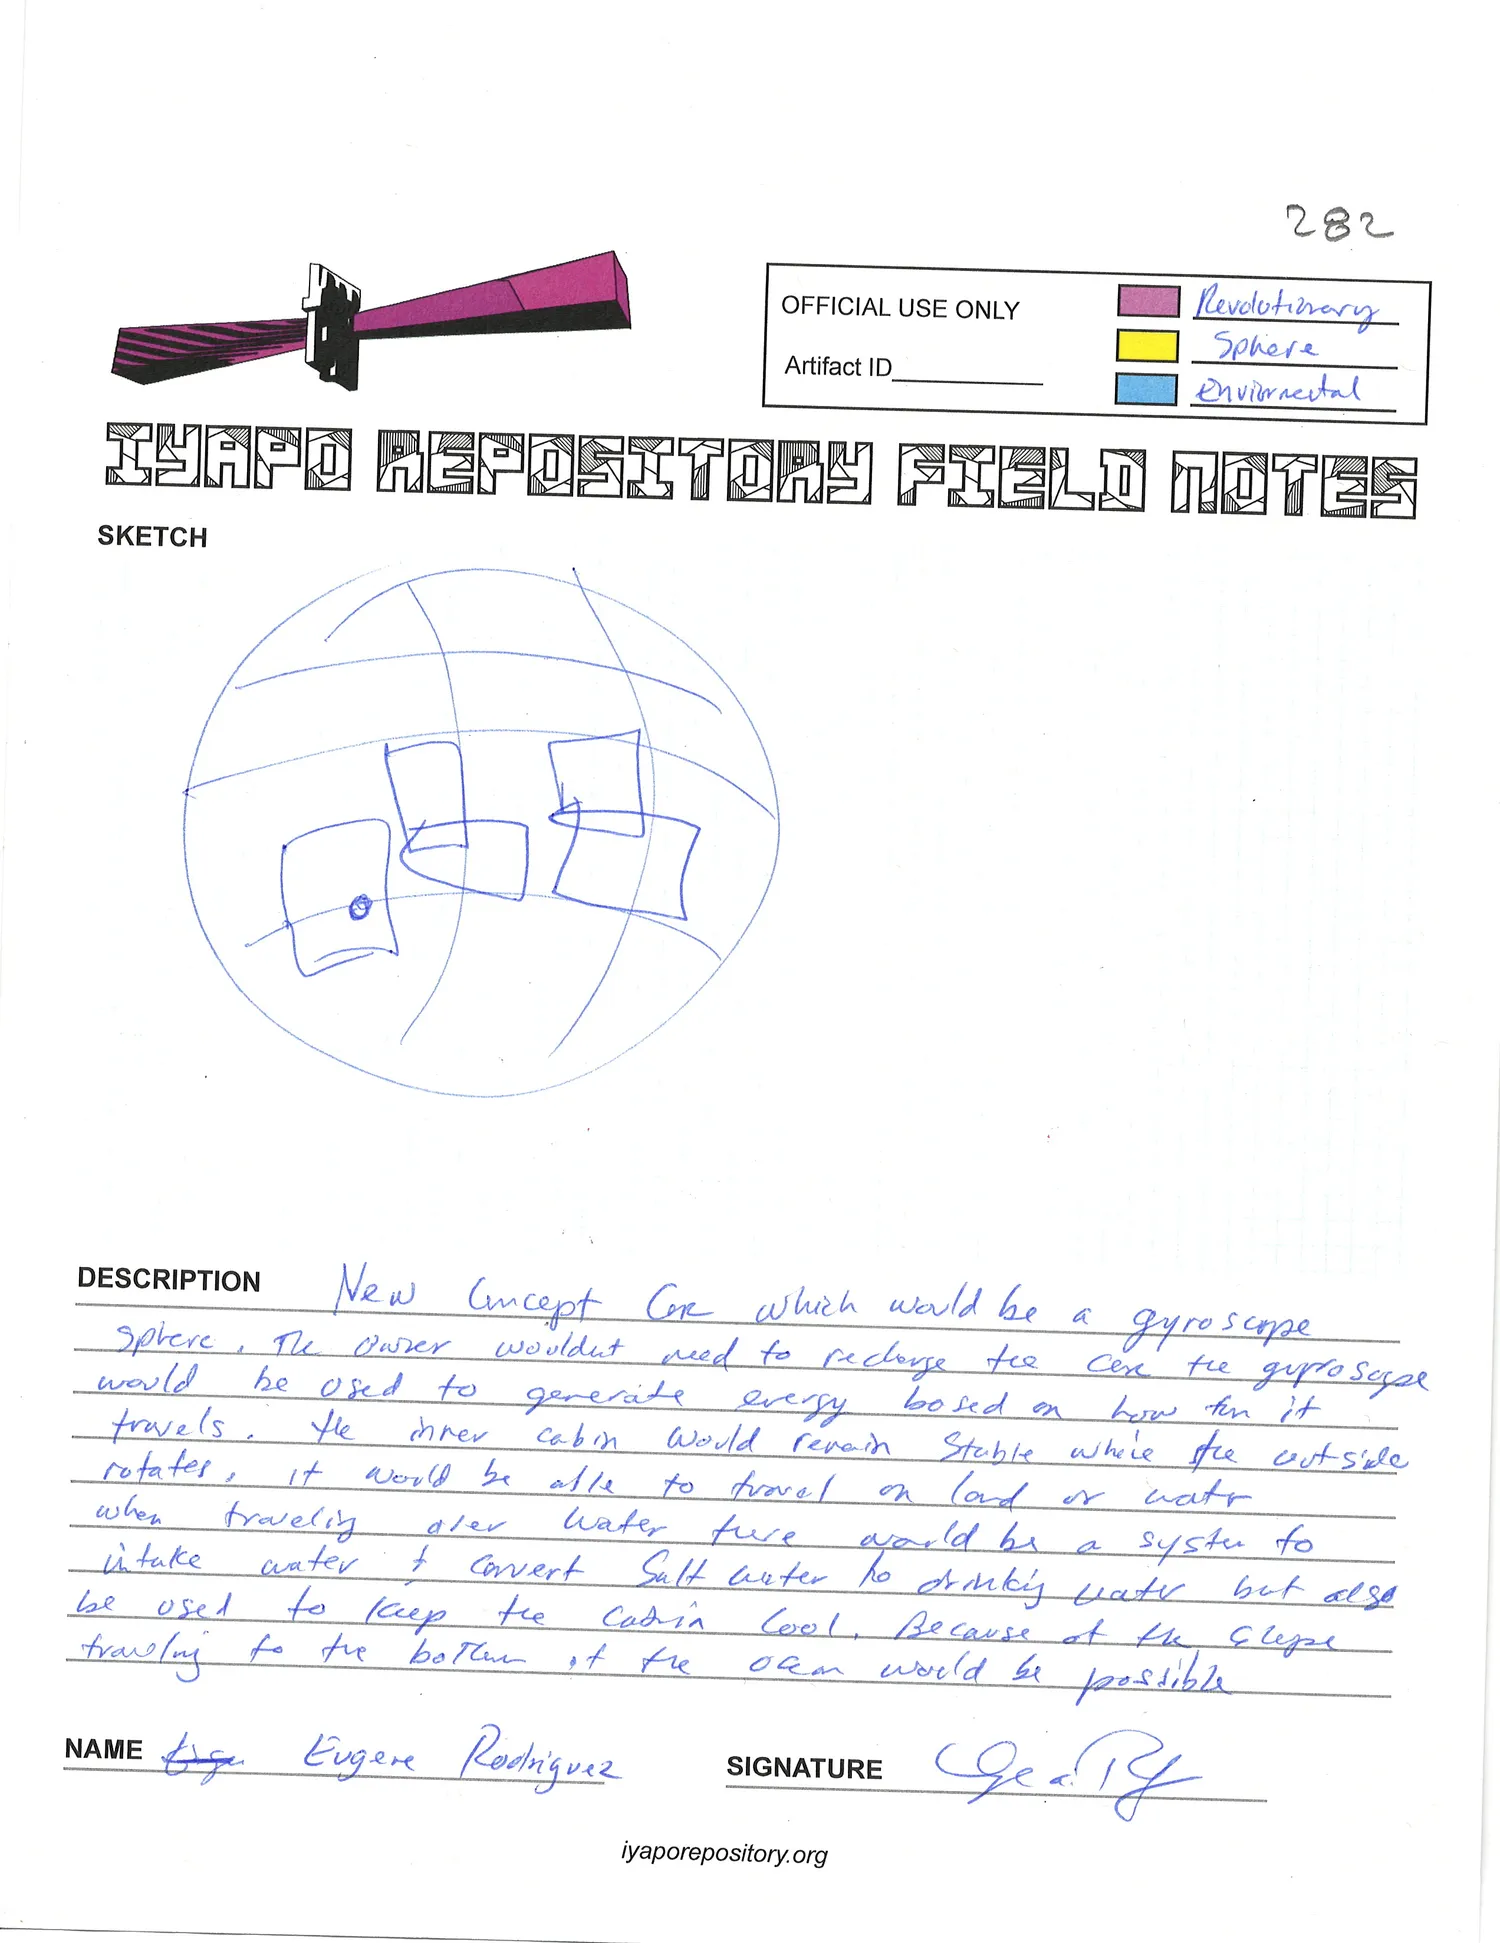 282
OFFICIAL USE ONLY
Revolutionary
Sphere
Artifact ID
Enviornmental
IYAPO REPOSITORY FIELD NOTES
SKETCH
DESCRIPTION New Concept Car which would be a gyroscope
sphere. The owner wouldnt need to recharge the car the gyproscope
would be used to generate energy based on how far it
travels. The inner cabin would remain stable while the outside
rotates. it would be able to travel on land or water
when traveling over water there would be a system to
intake water & convert Salt water to drinking water but also
be used to keep the cabin cool. Because of the shape
traveling to the bottom of the ocean would be possible
NAME Eugene Rodriguez
SIGNATURE
iyaporepository.org